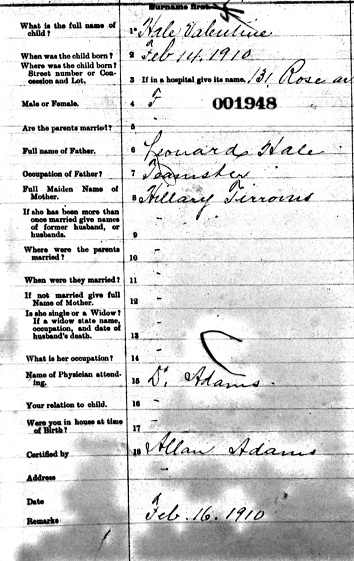 Surname first.
What is the full name of child? 1 Hale Valentine
When was the child born? 2 Feb 14. 1910
Where was the child born? Street number or Concession and Lot. 3 If in a hospital give its name. 131 Rose av
Male or Female. 4 F 001948
Are the parents married? 5 -
Full name of Father. 6 Leonard Hale
Occupation of Father? 7 Teamster
Full Maiden Name of Mother. 8 Hillary
If she has been more than once married give names of former husband, or husbands. 9 -
Where were the parents married? 10 -
When were they married? 11 -
If not married give full Name of Mother. 12 -
Is she single or a Widow? If a widow state name, occupation, and date of husband's death. 13 -
What is her occupation? 14 -
Name of Physician attending. 15 Dr. Adams.
Your relation to child. 16 -
Were you in house at time of Birth? 17 -
Certified by 18 Allan Adams
Address -
Date
Remarks Feb. 16. 1910